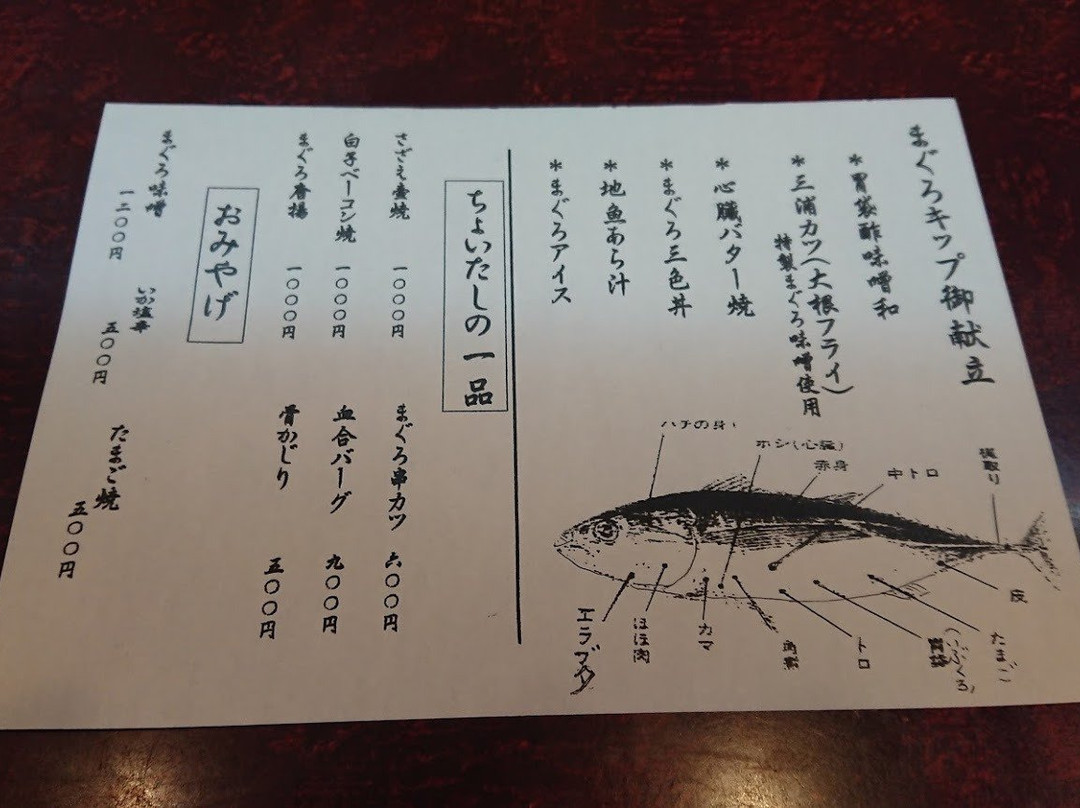 まぐろキップ御献立
＊胃袋酢味噌和
＊三浦カツ（大根フライ）
特製まぐろ味噌使用
＊心臓バター焼
＊まぐろ三色丼
＊地魚あら汁
＊まぐろアイス
ハチの身
ホシ（心臓）
赤身
中トロ
エラブタ
ほほ肉
カマ
トロ
たまご
皮
ちょいたしの一品
さざえ壷焼 一〇〇〇円
まぐろ串カツ 六〇〇円
白子ベーコン焼 一〇〇〇円
血合バーグ 九〇〇円
まぐろ唐揚 一〇〇〇円
骨かじり 五〇〇円
おみやげ
まぐろ味噌 一二〇〇円
いか塩辛 五〇〇円
たまご焼 五〇〇円